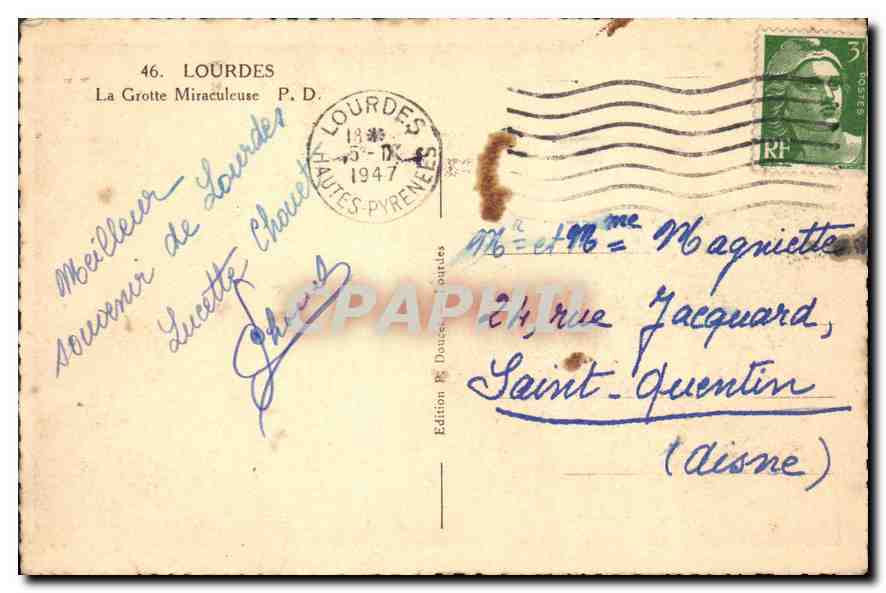 46. LOURDES
La Grotte Miraculeuse P. D.
LOURDES
18
5-IX
1947
HAUTES-PYRENEES
3F
POSTES
RF
Meilleur
souvenir de Lourdes
Lucette Chouet
Mr et Mme Magniette
24, rue Jacquard,
Saint-Quentin
(Aisne)
Edition P. Doucet Lourdes
CPAPHIL